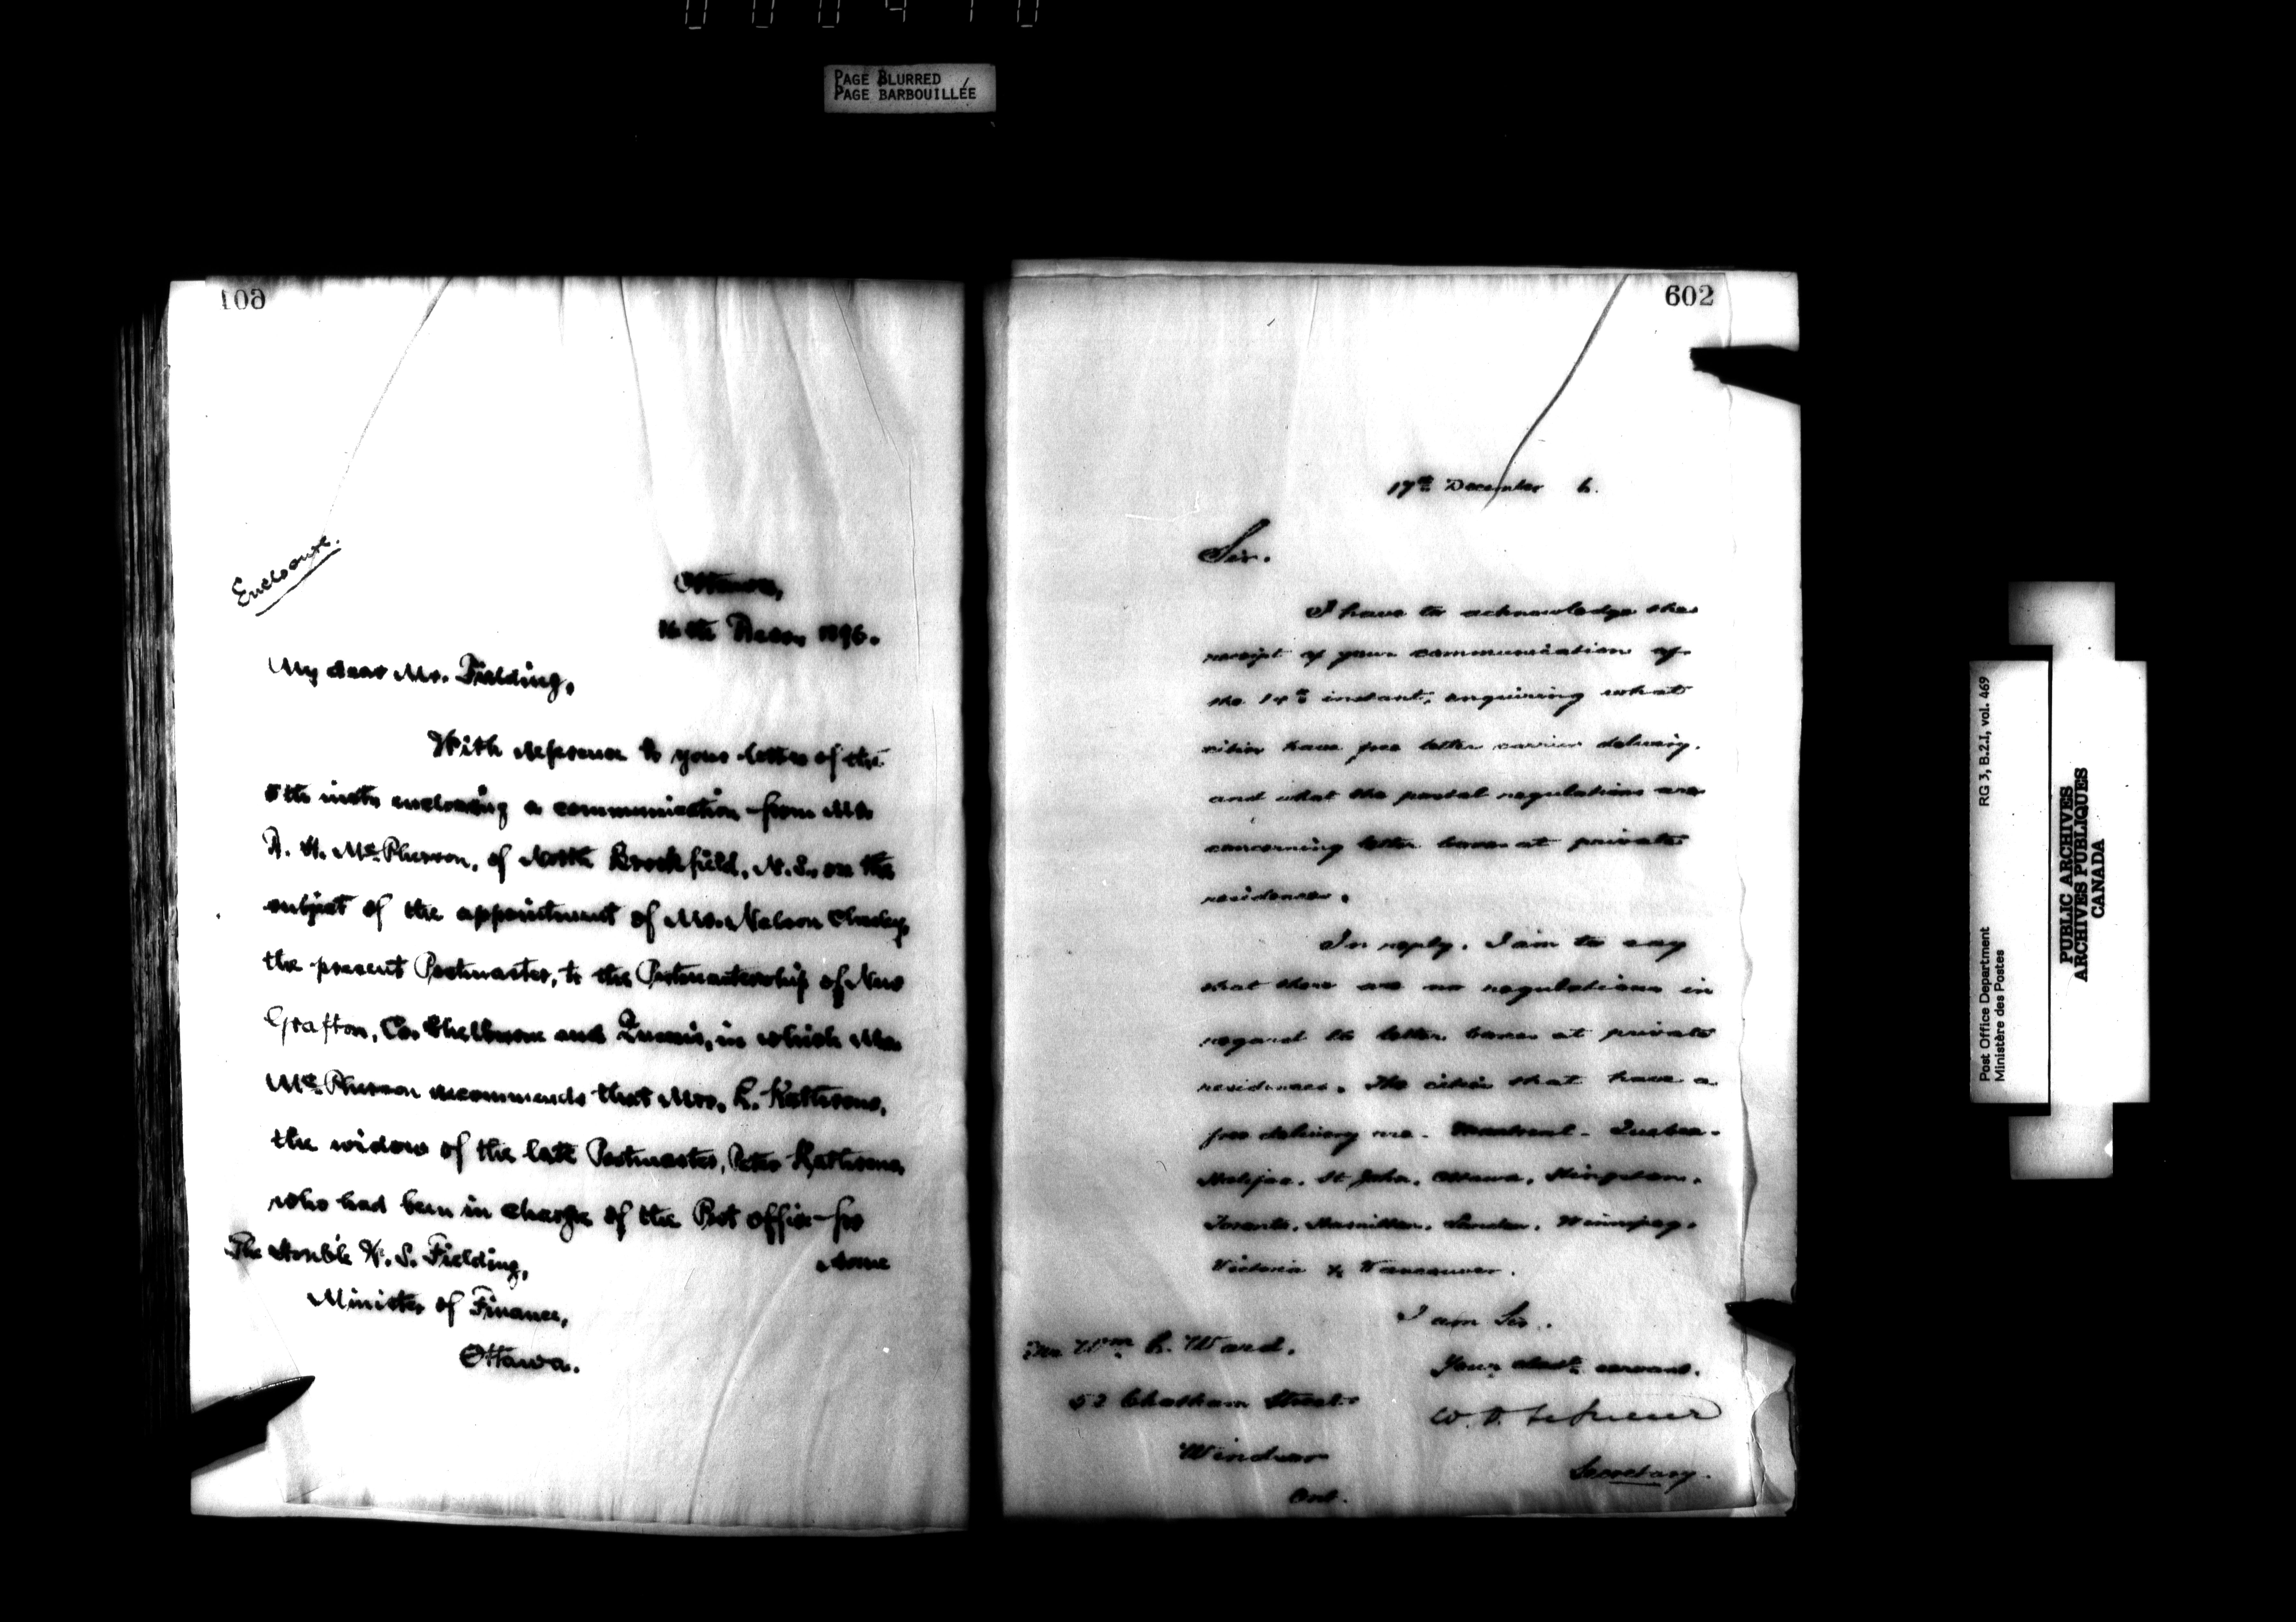 PAGE BLURRED
PAGE BARBOUILLÉE
601
Enclosure.
Ottawa,
16th Decr. 1896.
My dear Mr. Fielding,
With reference to your letter of the
5th inst., enclosing a communication from Mr.
McPherson, of North Brookfield, N.S., on the
subject of the appointment of Mr. Nelson
the present Postmaster, to the Postmastership of New
Grafton, Co. Shelburne and Queen's, in which Mr.
McPherson recommends that Mrs.
the widow of the late Postmaster, Peter
who had been in charge of the Post office for
some
The Honble W. S. Fielding,
Minister of Finance,
Ottawa.
602
17th December 6.
Sir.
I have to acknowledge the
receipt of your communication of
the 14th instant, enquiring what
cities have free letter carrier delivery.
and what the postal regulations are
concerning letter boxes at private
residences.
In reply, I am to say
that there are no regulations in
regard to letter boxes at private
residences. The cities that have a
free delivery are - Montreal - Quebec -
Halifax, St John, Ottawa, Kingston,
Toronto, Hamilton, London, Winnipeg,
Victoria & Vancouver.
I am Sir,
Your obedt. servant,
W. D. LeSueur
Secretary.
Mr Wm. Ward,
52 Chatham Street
Windsor
Ont.
Post Office Department
Ministère des Postes
RG 3, B.2.I, vol. 469
PUBLIC ARCHIVES
ARCHIVES PUBLIQUES
CANADA